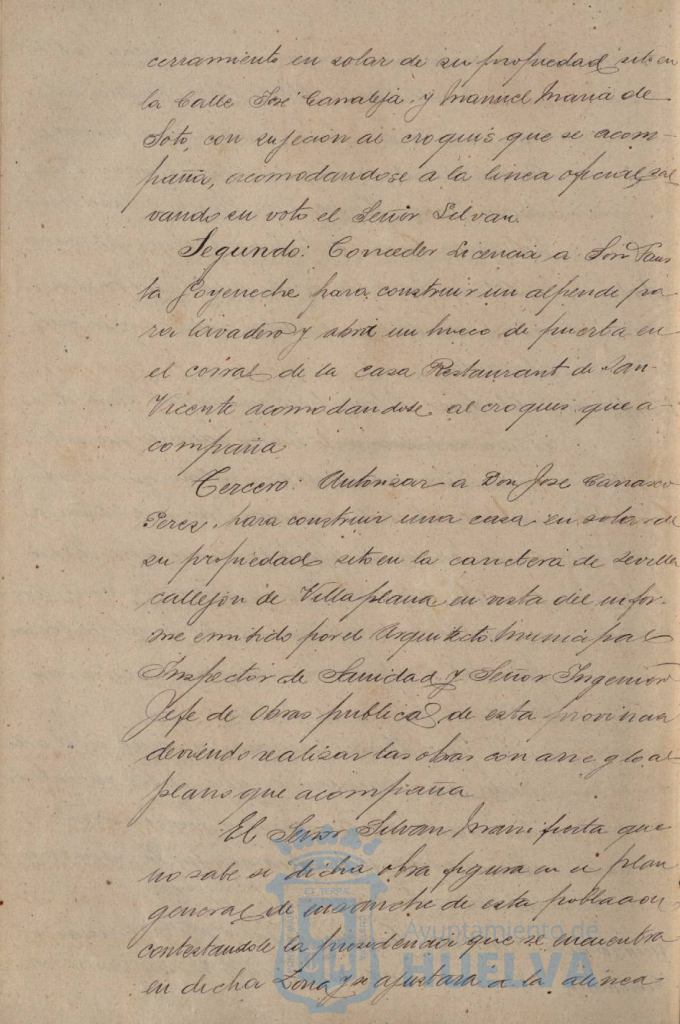 cerramiento en solar de su propiedad sito en
la Calle José Canaleja y Manuel Maria de
Soto, con sujecion al croquis que se acom-
paña, acomodandose a la linea oficial, sal
vando su voto el Señor Silvan.
Segundo: Conceder Licencia a
ta Goyeneche para construir un alpende pa
ra lavadero y abrir un hueco de puerta en
el corral de la casa Restaurant de San
Vicente acomodandose al croquis que a-
compaña
Tercero: Autorizar a Don Jose Carrasco
Perez, para construir una casa en solar de
su propiedad sito en la carretera de Sevilla
callejon de Villaplana en vista del infor-
me emitido por el Arquitecto Municipal
Inspector de Sanidad y Señor Ingeniero
Jefe de Obras publicas de esta provincia
deviendo realizar las obras con arreglo al
plano que acompaña
El Señor Silvan Manifiesta que
no sabe si dicha obra figura en el plan
general de ensanche de esta poblacion
contestandole la presidencia que se encuentra
en dicha Zona y se ajustara a la alinea
Ayuntamiento de
HUELVA